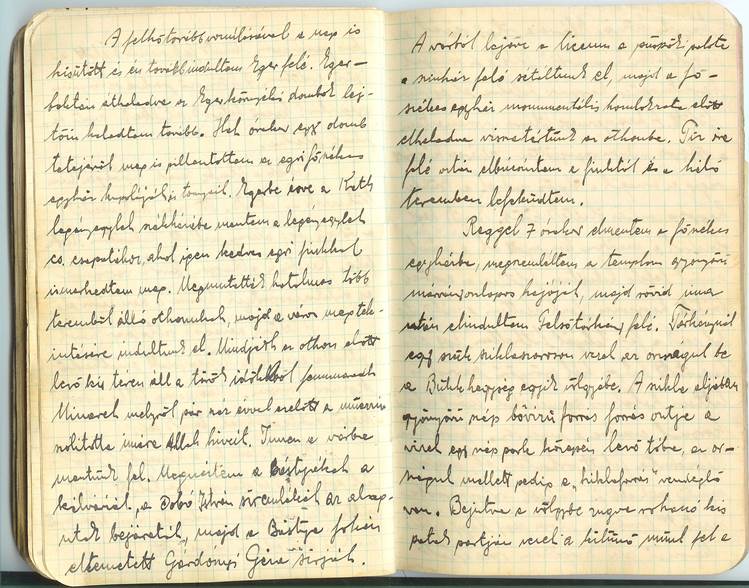 A felhő továbbvonulásával a nap is
kisütött és én továbbindultam Eger felé. Eger-
baktán áthaladva az Eger környéki dombok lej-
tőin haladtam tovább. Hat órakor egy domb
tetejéről meg is pillantottam az egri főszékes
egyház kupoláját és tornyait. Egerbe érve a Kath
legényegylet székházába mentem a legényegylet
cs. csapatához, ahol igen kedves egri fiukkal
ismerkedtem meg. Megmutatták hatalmas több
teremből álló othonukat, majd a város megtek-
intésére indultunk el. Mindjárt az othon előtt
levő kis téren áll a török időkből fennmaradt
Minaret melyről pár száz évvel ezelőtt a müezzin
szólította imára Allah híveit. Innen a várba
mentünk fel. Megnéztem a Bástyákat a
kálváriát, a Dobó István síremlékét az alag-
utak bejáratát, majd a Bástya fokán
eltemetett Gárdonyi Géza sírját.
A várból lejöve a liceum a püspöki palota
a szinház felé sétáltunk el, majd a fő-
székesegyház monumentális homlokzata előtt
elhaladva visszatértünk az othonba. Tíz óra
felé aztán elbúcsúztam a fiuktól és a háló
teremben lefeküdtem.
Reggel 7 órakor elmentem a főszékes
egyházba, megszemléltem a templom gyönyörű
márványoszlopos hajóját, majd rövid ima
után elindultam Felsőtárkány felé. Tárkánynál
egy szűk sziklaszoroson vezet az országút be
a Bükk hegység egyik völgyébe. A szikla aljában
gyönyörű szép bővizű forrás ontja a
vizet egy szép park közepén levő tóba, az or-
szágut mellett pedig a "sziklaforrás" vendéglő
van. Bejutva a völgybe zugva rohanó kis
patak partján vezet a kitűnő műut fel a